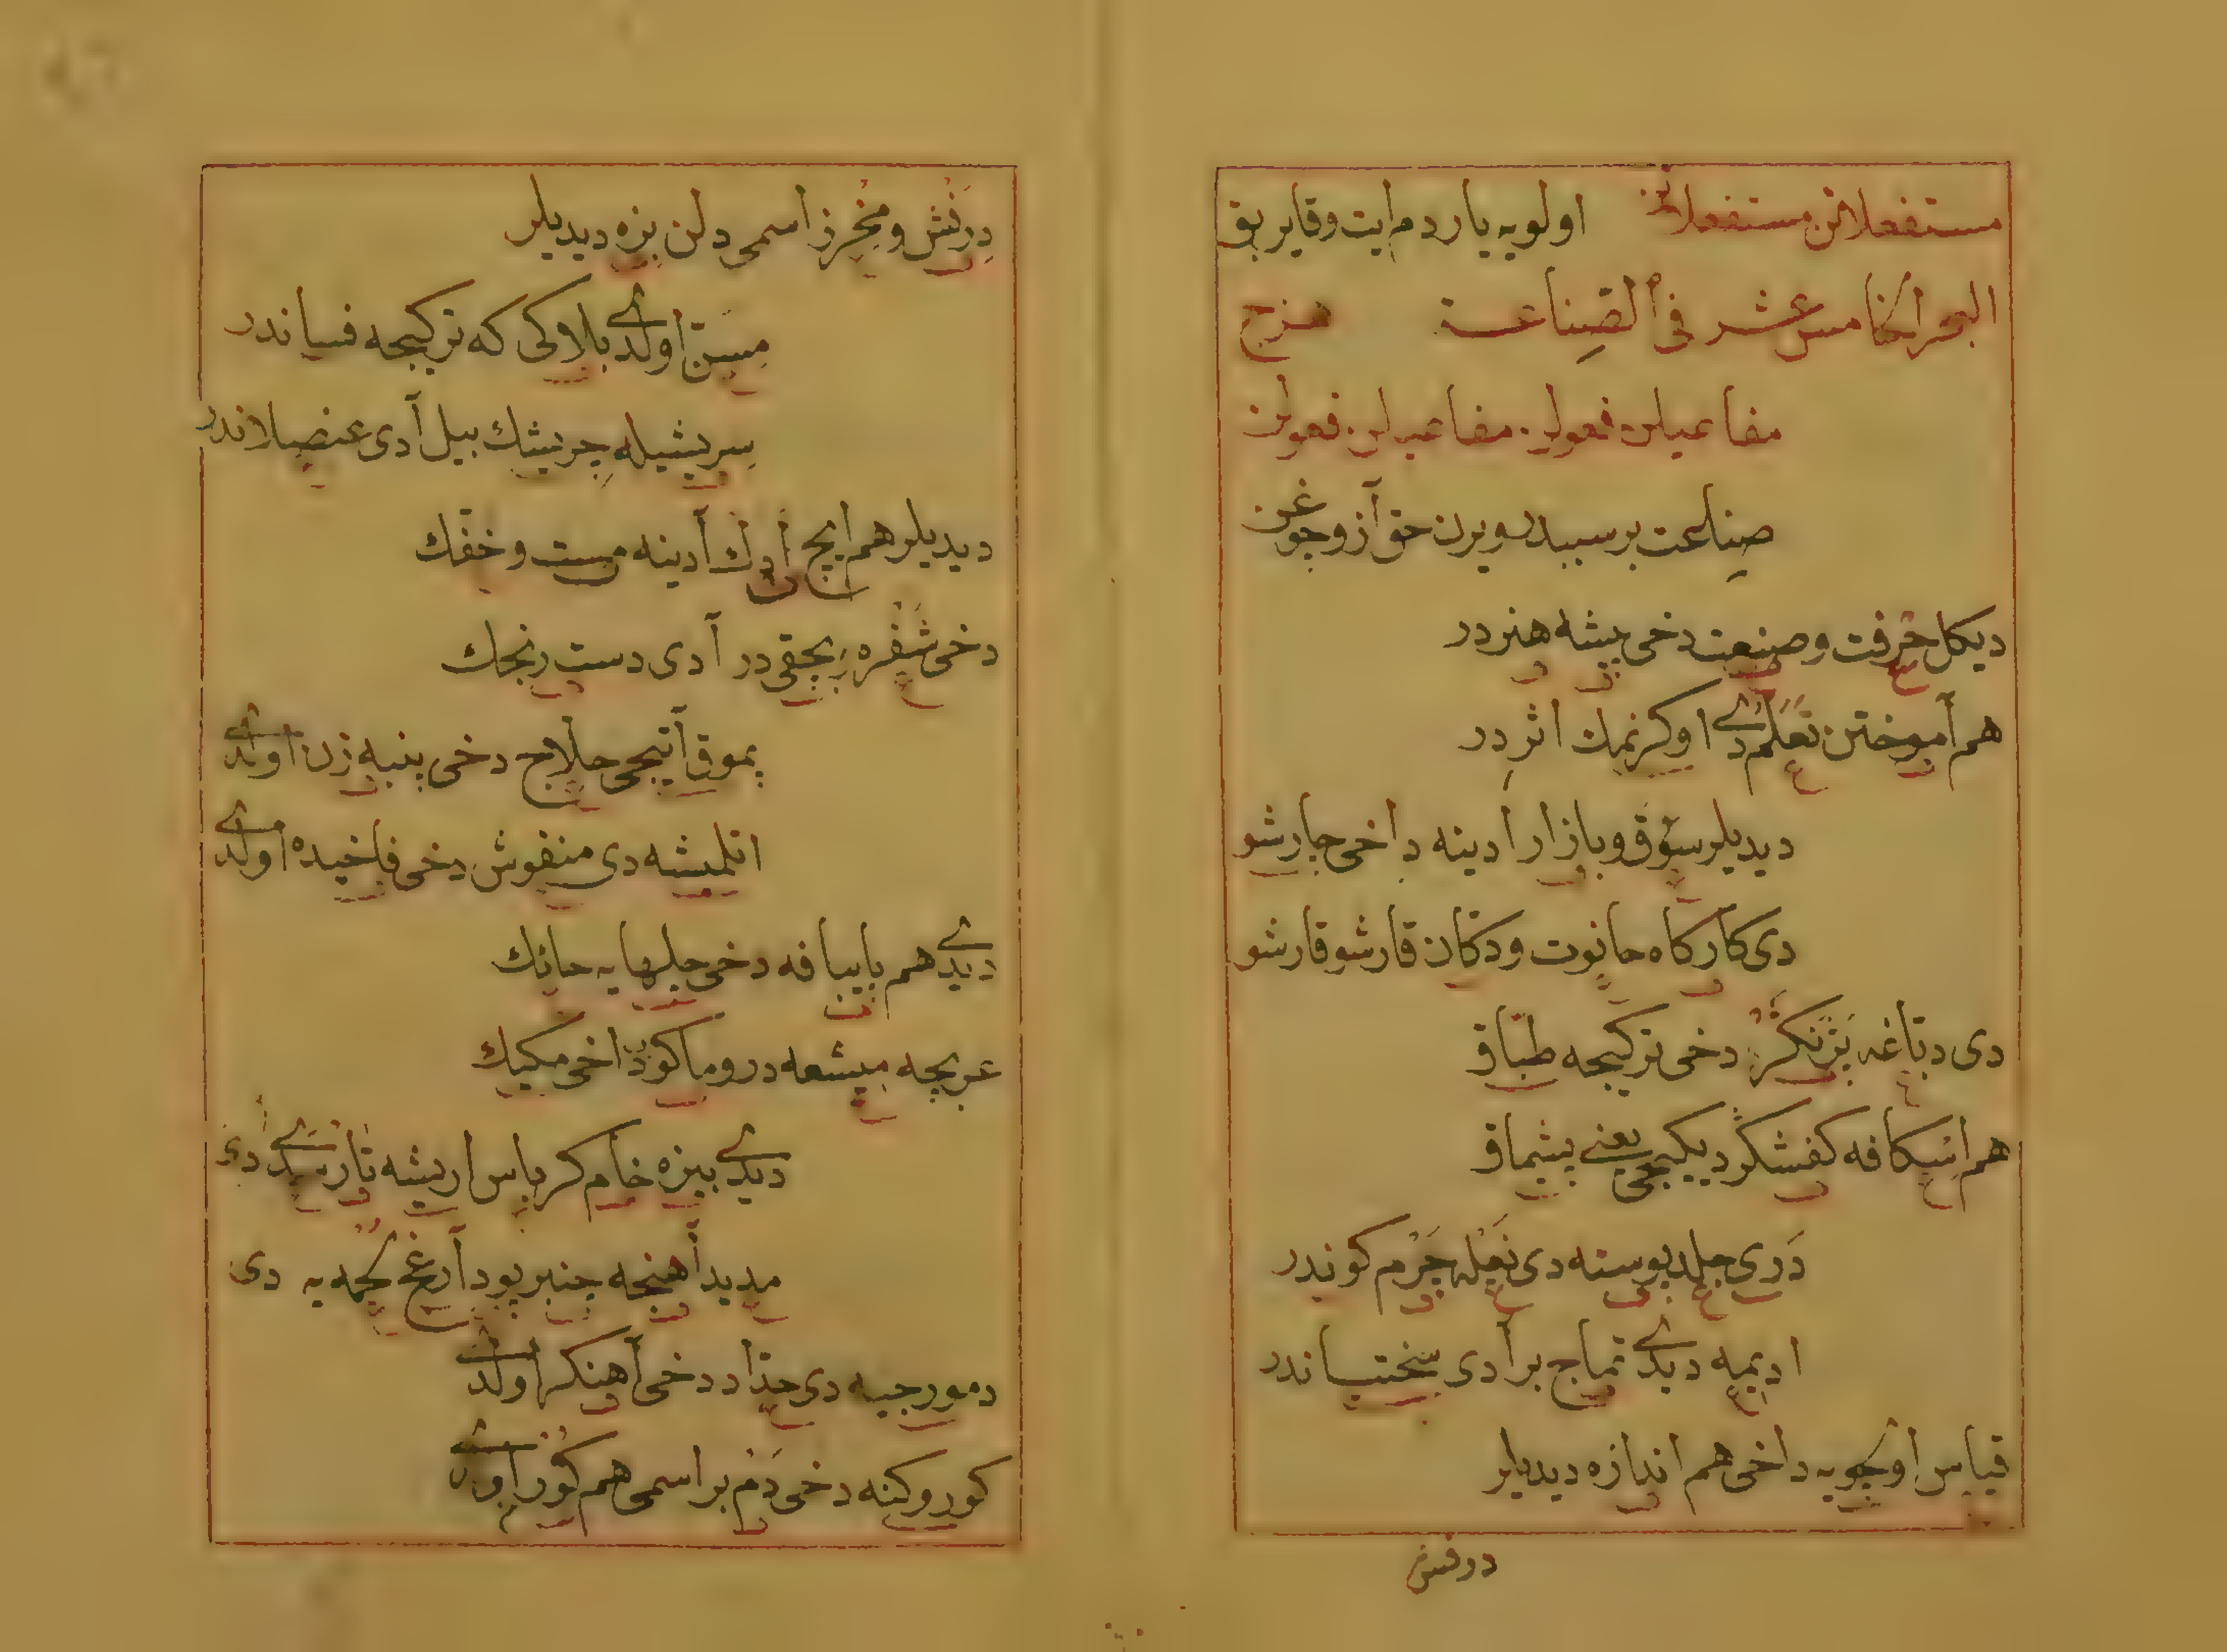 مستفعلاتن مستفعلاتن اولويه ياردم ايت وقايريق
البحر الخامس عشر فى الصناعة هزج
مفاعيلن فعولن مفاعيلن فعولن
صناعت بر سببدر ويرن حق آز وچوغن
ديكل حرفت وصنعت دخى پيشه هنردر
هم آموختن تعلم دى اوكرنمك اثر در
ديديلر سوق وبازار ادينه داخى چارشو
دى كاركاه حانوت ودكان قارشو قارشو
دى دباغه بزنكر دخى تركيجه طباق
هم اسكافه كفشكر ديكيجى يعنى بشماق
درى جلد پوسته دى نعله چرم كوندر
اديميه ديدى تماج بر ادى سختياندر
قياس اولچويه داخى هم اندازه ديديلر
درفش
درفش ومخرز اسمى دلن بزه ديديلر
مسن اولدى بلاوكى كه تركيجه فسياندر
سريشيله چريشك بيل آدى عنصلاندر
ديديلر هم ايچ ادك آدينه مست وخفك
دخى شفره بچقى در آدى دست رنجك
پموق آتيجى حلاج دخى پنبه زن اولدى
اتلمشه دى منفوش دخى فلخيده اولدى
ديدى هم بايبافه دخى جلهايه حائك
عربجه ميشعه در وماكو داخى مكيك
ديدى بيزه خام كرباس اريشه تار سدى دى
مديد آهنجه چنبر پود آرغج لحمه يه دى
دمورجيه دى حداد دخى آهنكر اولدى
كوروكنه دخى دم بر اسمى هم كور اولدى